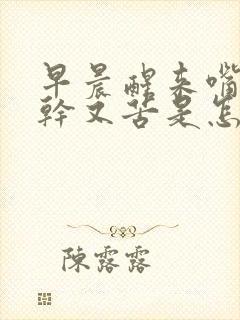 早晨醒来嘴
幹又苦是怎
陳露露